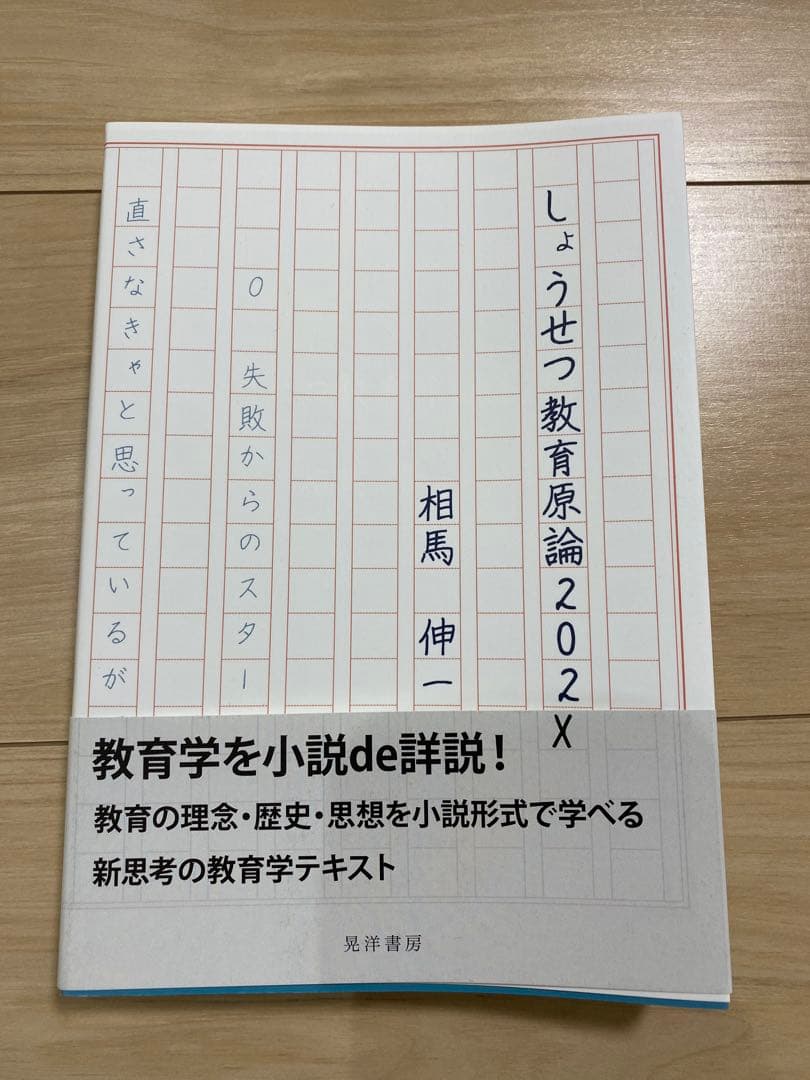 しょうせつ教育原論202X
相馬 伸一
0 失敗からのスター
直さなきゃと思っているが
教育学を小説de詳説!
教育の理念・歴史・思想を小説形式で学べる
新思考の教育学テキスト
晃洋書房